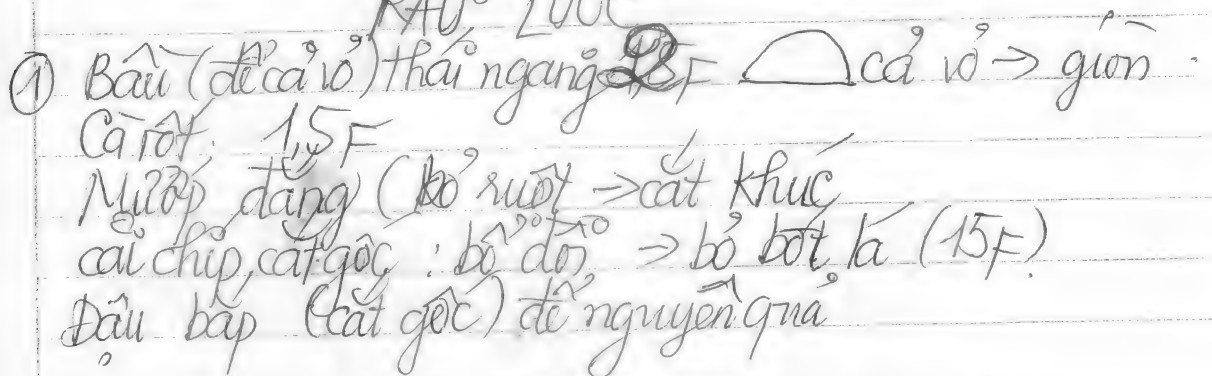 RAU LUỘC
① Bầu (để cả vỏ) thái ngang 2F cả vỏ → giòn.
Cà rốt: 1,5F
Mướp đắng (bỏ ruột → cắt khúc
cải chíp, cắt gốc : bổ đôi → bỏ bớt lá (15F)
Đậu bắp (cắt gốc) để nguyên quả